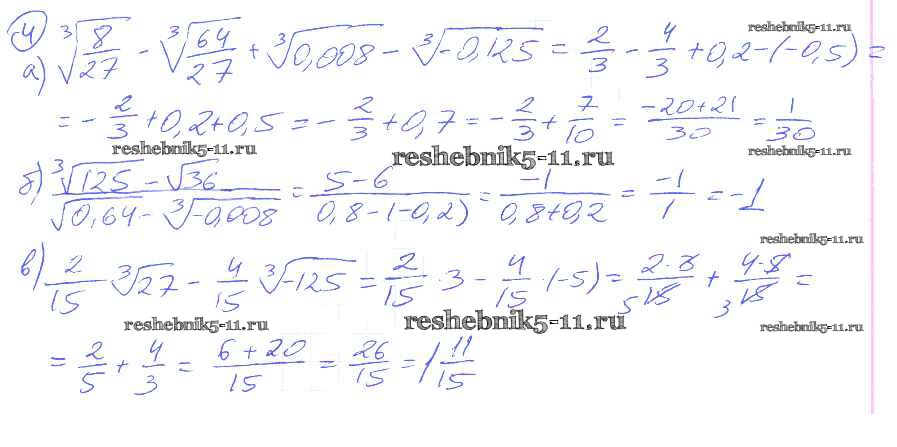 4 reshebnik5-11.ru
а) ∛(8/27) - ∛(64/27) + ∛0,008 - ∛-0,125 = 2/3 - 4/3 + 0,2 - (-0,5) =
= - 2/3 + 0,2 + 0,5 = - 2/3 + 0,7 = - 2/3 + 7/10 = (-20+21)/30 = 1/30
reshebnik5-11.ru reshebnik5-11.ru reshebnik5-11.ru
б) (∛125 - √36)/(√0,64 - ∛-0,008) = (5-6)/(0,8-(-0,2)) = -1/(0,8+0,2) = -1/1 = -1
reshebnik5-11.ru
в) 2/15 ∛27 - 4/15 ∛-125 = 2/15 · 3 - 4/15 · (-5) = (2·3)/(5 15) + (4·5)/(3 15) =
reshebnik5-11.ru reshebnik5-11.ru reshebnik5-11.ru
= 2/5 + 4/3 = (6+20)/15 = 26/15 = 1 11/15